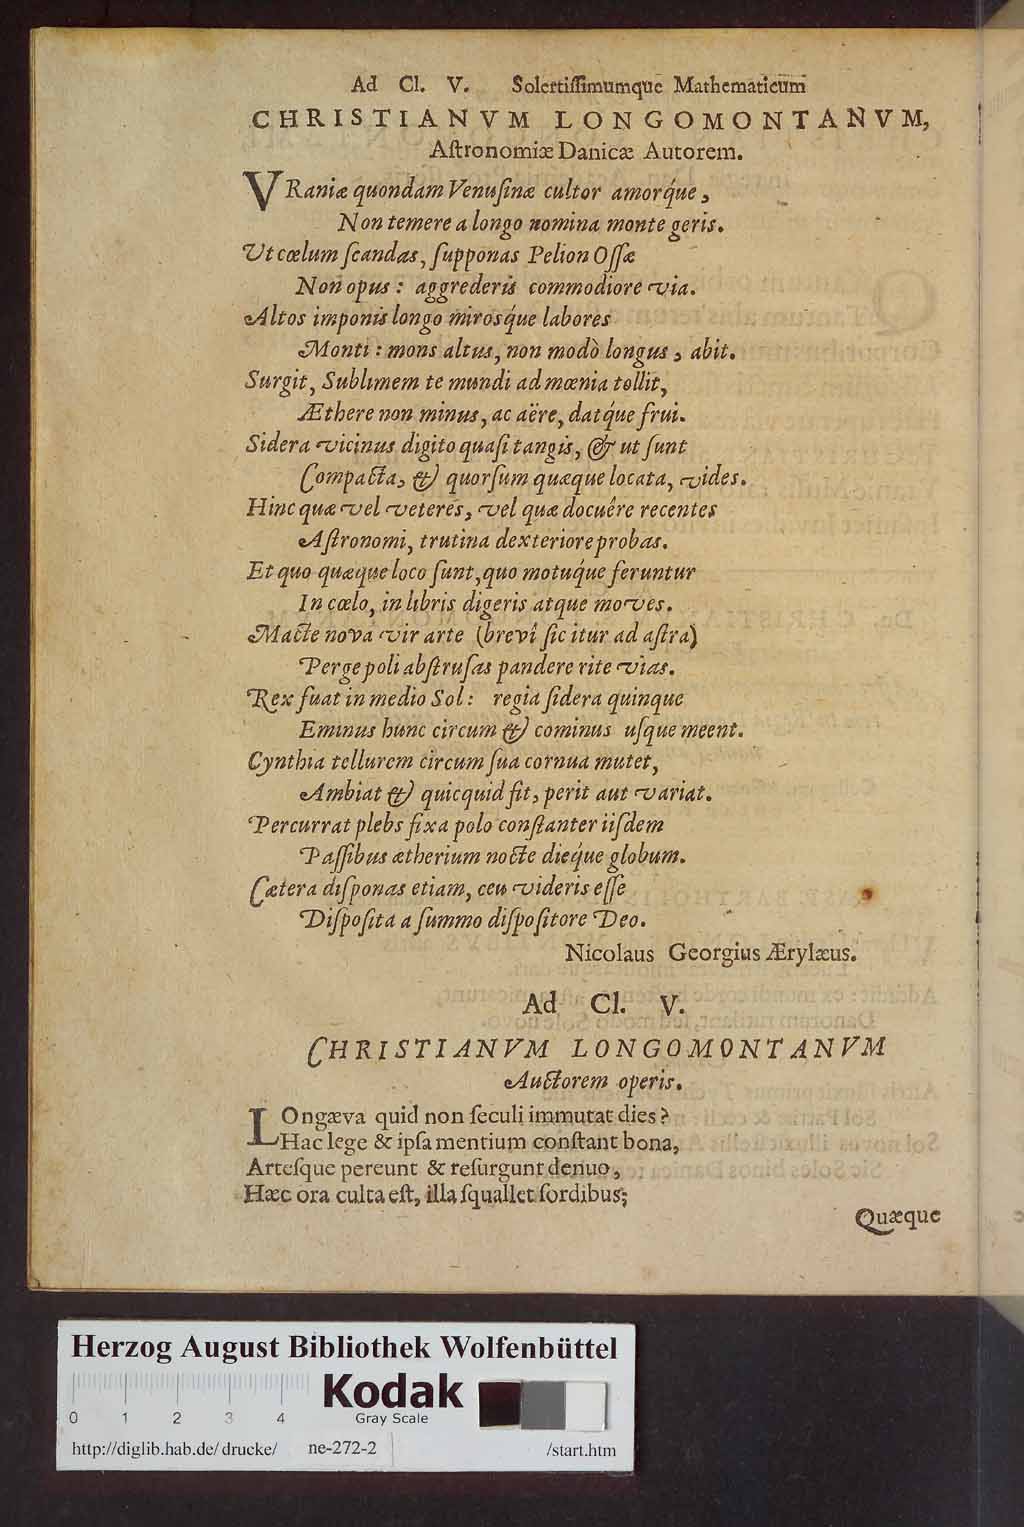 Ad Cl. V. Solertiſſimumque Mathematicum
CHRISTIANVM LONGOMONTANVM,
Aſtronomiæ Danicæ Autorem.
VRaniæ quondam Venuſinæ cultor amorq́ue,
Non temere a longo nomina monte geris.
Ut cœlum ſcandas, ſupponas Pelion Oſſæ
Non opus: aggrederis commodiore via.
Altos imponis longo mirosq́ue labores
Monti: mons altus, non modò longus, abit.
Surgit, Sublimem te mundi ad mœnia tollit,
Æthere non minus, ac aëre, datq́ue frui.
Sidera vicinus digito quaſi tangis, & ut ſunt
Compacta, & quorſum quæque locata, vides.
Hinc quæ vel veteres, vel quæ docuêre recentes
Aſtronomi, trutina dexteriore probas.
Et quo quæque loco ſunt, quo motuq́ue feruntur
In cœlo, in libris digeris atque moves.
Macte nova vir arte (brevî ſic itur ad aſtra)
Perge poli abſtruſas pandere rite vias.
Rex fuat in medio Sol: regia ſidera quinque
Eminus hunc circum & cominus uſque meent.
Cynthia tellurem circum ſua cornua mutet,
Ambiat & quicquid fit, perit aut variat.
Percurrat plebs fixa polo conſtanter iiſdem
Paſſibus ætherium nocte dieq́ue globum.
Cætera diſponas etiam, ceu videris eſſe
Diſpoſita a ſummo diſpoſitore Deo.
Nicolaus Georgius Ærylæus.
Ad Cl. V.
CHRISTIANVM LONGOMONTANVM
Auctorem operis.
LOngæva quid non ſeculi immutat dies?
Hac lege & ipſa mentium conſtant bona,
Arteſque pereunt & reſurgunt denuo,
Hæc ora culta eſt, illa ſquallet ſordibus;
Quæque
Herzog August Bibliothek Wolfenbüttel
Kodak
Gray Scale
0 1 2 3 4
http://diglib.hab.de/drucke/ ne-272-2 /start.htm